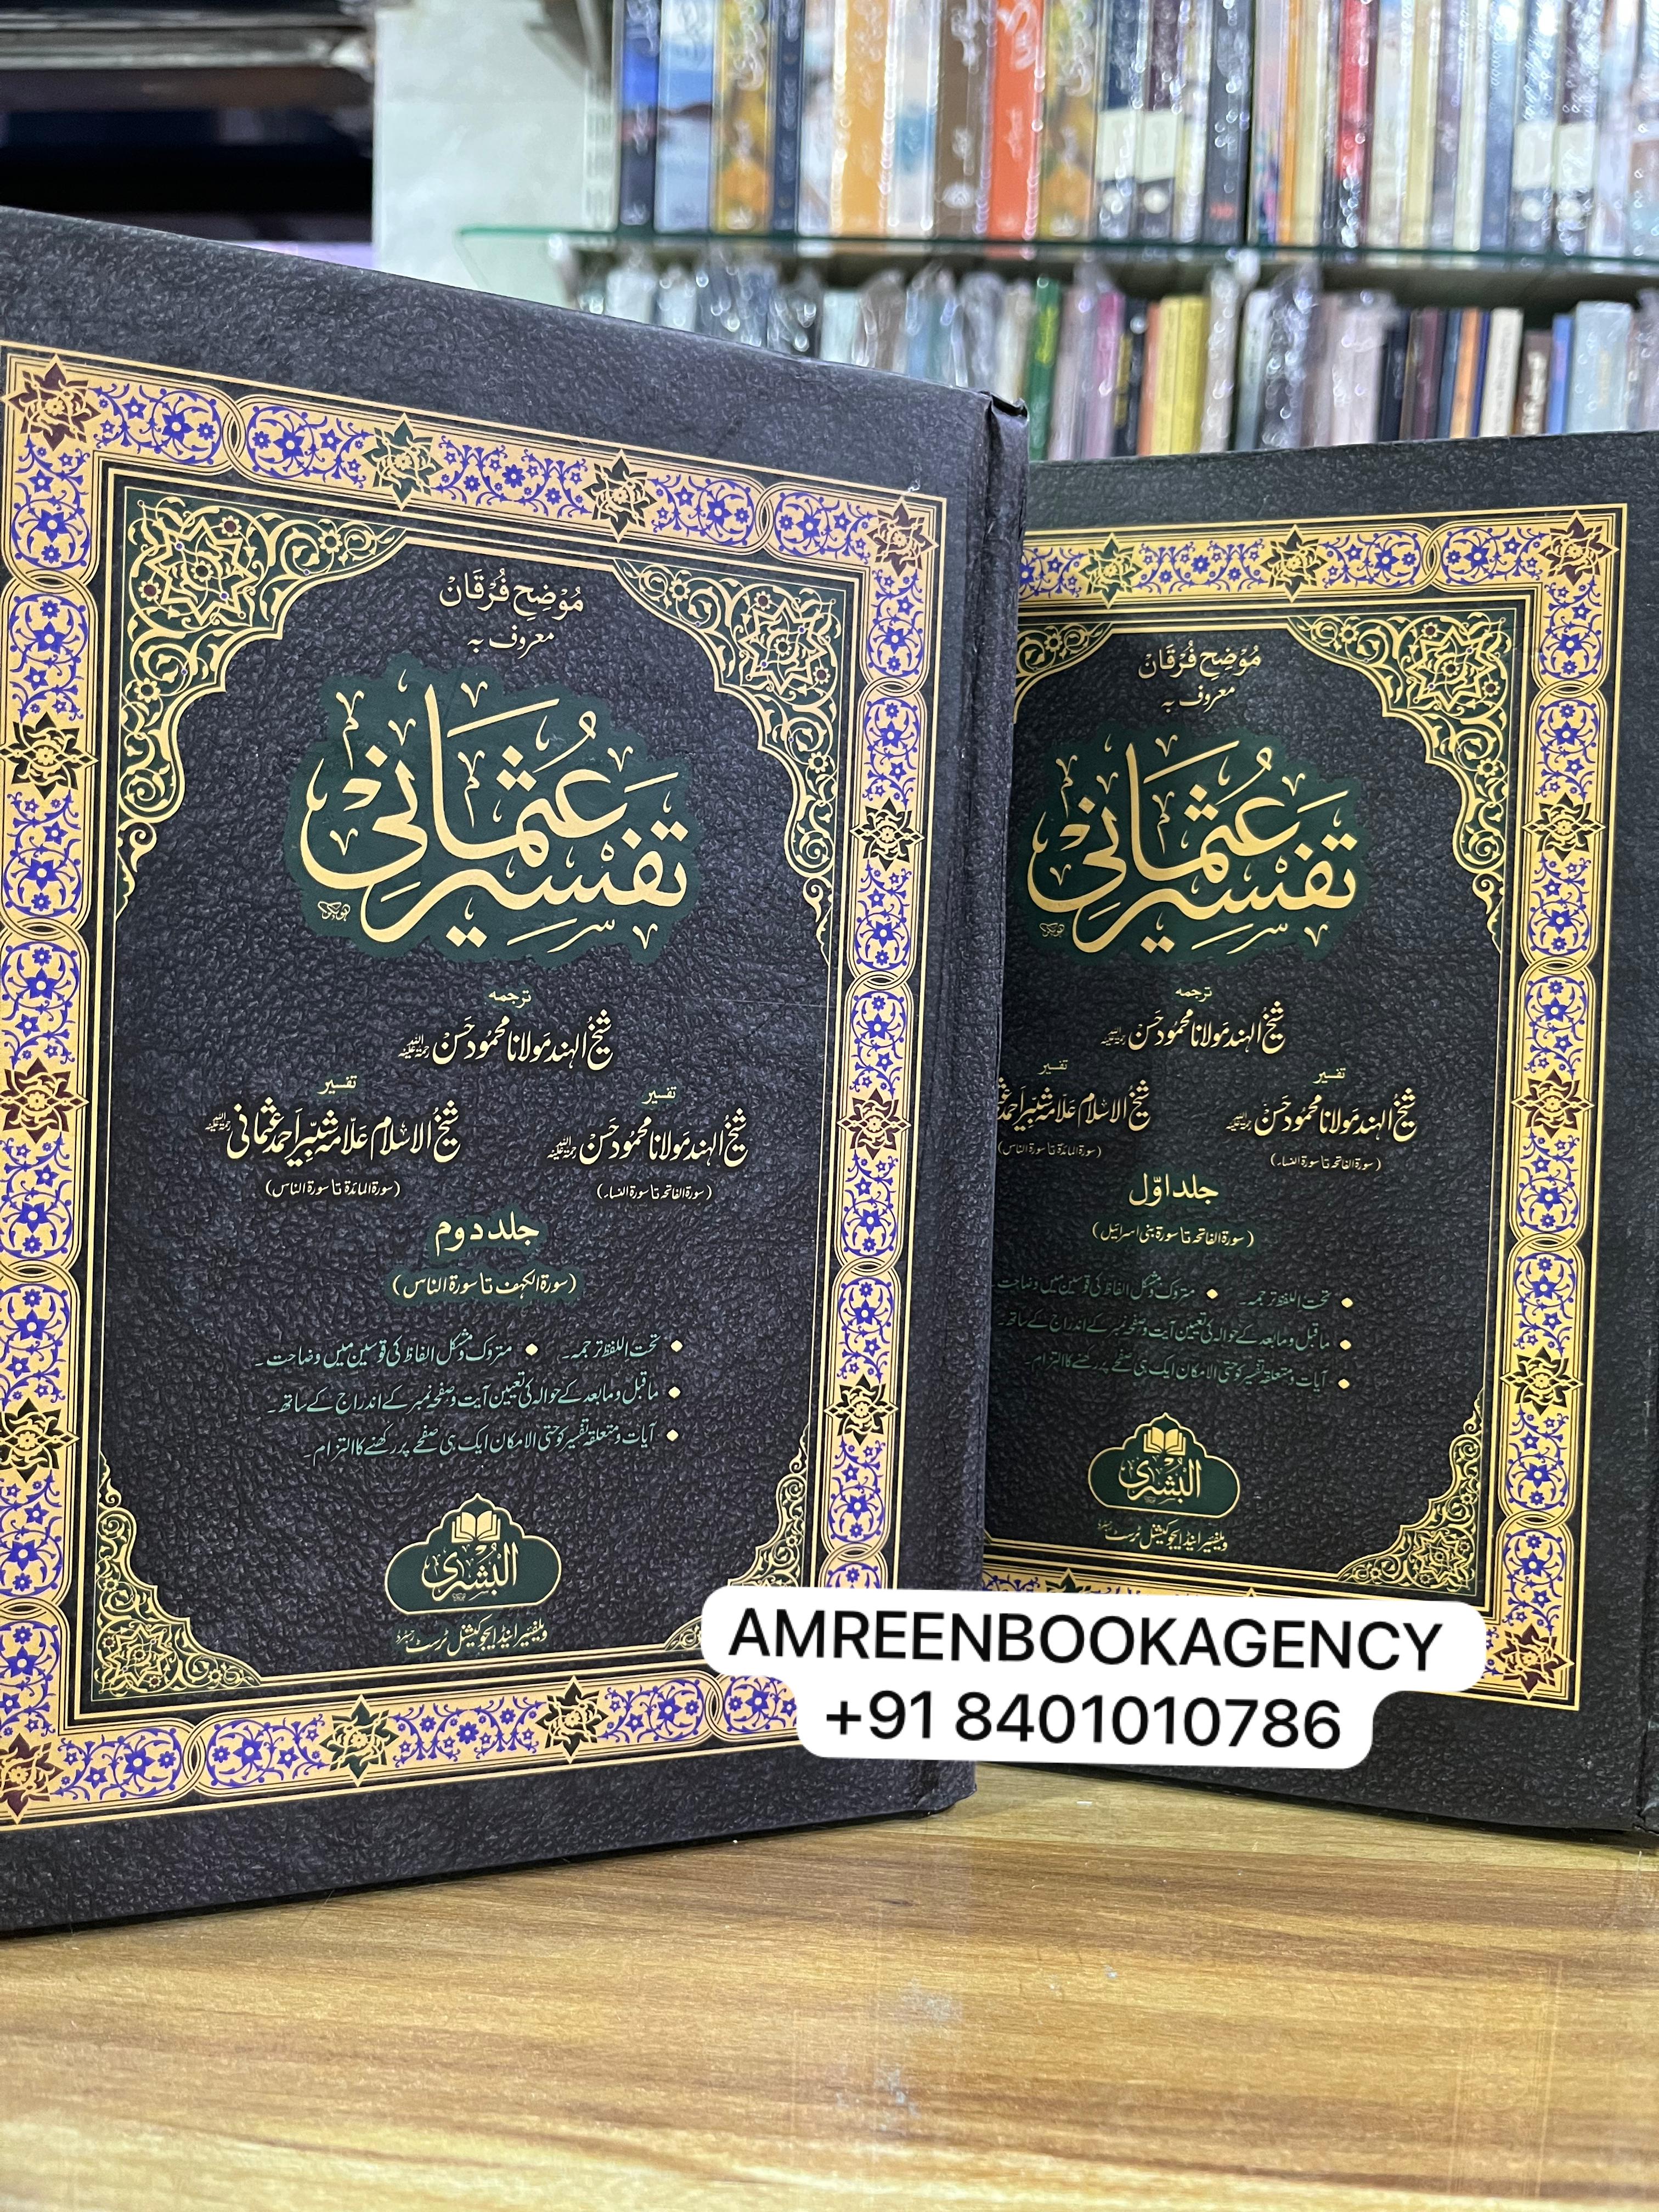 مُوْضِح فُرْقَانْ
معروف بہ
تفسیر عثمانی
ترجمہ
شیخ الہند مولانا محمود حسن رحمۃ اللہ علیہ
تفسیر
شیخ الہند مولانا محمود حسن رحمۃ اللہ علیہ
(سورۃ الفاتحہ تا سورۃ النساء)
تفسیر
شیخ الاسلام علامہ شبیر احمد عثمانی رحمۃ اللہ علیہ
(سورۃ المائدۃ تا سورۃ الناس)
جلد دوم
(سورۃ الکہف تا سورۃ الناس)
تحت اللفظ ترجمہ۔ • متروک و مشکل الفاظ کی قوسین میں وضاحت۔
ماقبل وما بعد کے حوالہ کی تعیین آیت و صفحہ نمبر کے اندراج کے ساتھ۔
آیات و متعلقہ تفسیر کو حتی الامکان ایک ہی صفحے پر رکھنے کا التزام۔
البُشریٰ
ویلفیئر اینڈ ایجوکیشنل ٹرسٹ
مُوْضِح فُرْقَانْ
معروف بہ
تفسیر عثمانی
ترجمہ
شیخ الہند مولانا محمود حسن رحمۃ اللہ علیہ
تفسیر
شیخ الہند مولانا محمود حسن رحمۃ اللہ علیہ
(سورۃ الفاتحہ تا سورۃ النساء)
تفسیر
شیخ الاسلام علامہ شبیر احمد
سورۃ المائدۃ تا سورۃ الناس)
جلد اوّل
(سورۃ الفاتحہ تا سورۃ بنی اسرائیل)
تحت اللفظ ترجمہ۔ • متروک و مشکل الفاظ کی قوسین میں وضاحت
ماقبل وما بعد کے حوالہ کی تعیین آیت و صفحہ نمبر کے اندراج کے ساتھ۔
آیات و متعلقہ تفسیر کو حتی الامکان ایک ہی صفحے پر رکھنے کا التزام۔
البُشریٰ
ویلفیئر اینڈ ایجوکیشنل ٹرسٹ
AMREENBOOKAGENCY
+91 8401010786